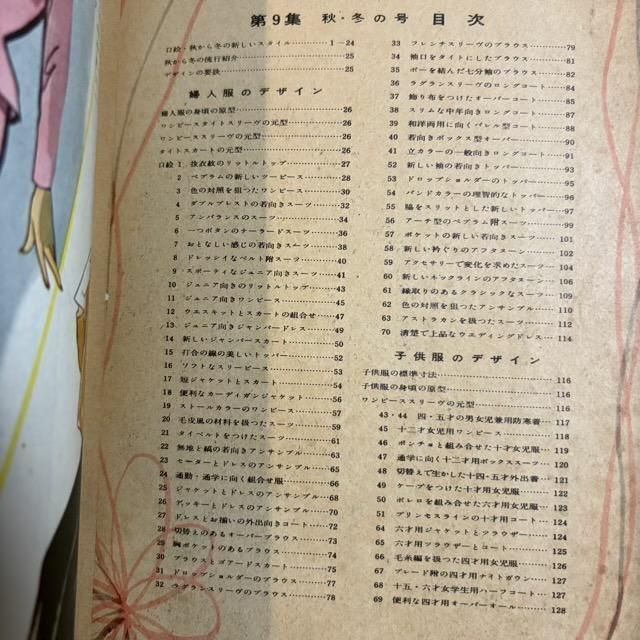 第9集 秋・冬の号 目次
口絵・秋から冬の新しいスタイル……1―24
秋から冬の流行紹介……25
デザインの要訣……25
婦人服のデザイン
婦人服の身頃の原型……26
ワンピースタイトスリーヴの元型……26
ワンピーススリーヴの元型……26
タイトスカートの元型……26
口絵 1 抜衣紋のリットルトップ……27
2 ペプラムの新しいツーピース……28
3 色の対照を狙ったワンピース……30
4 ダブルブレストの若向きスーツ……32
5 アンバランスのスーツ……34
6 一つボタンのテーラードスーツ……36
7 おとなしい感じの若向きスーツ……38
8 ドレッシイなベルト附スーツ……40
9 スポーティなジュニア向きスーツ……41
10 ジュニア向きのリットルトップ……43
11 ジュニア向きワンピース……45
12 ウエスキットとスカートの組合せ……47
13 ジュニア向きジャンパードレス……49
14 新しいジャンパースカート……50
15 打合の線の美しいトッパー……52
16 ソフトなスリーピース……53
17 短ジャケットとスカート……54
18 便利なカーディガンジャケット……56
19 ストールカラーのワンピース……57
20 毛皮風の材料を扱ったスーツ……59
21 タイベルトをつけたスーツ……61
22 無地と縞の若向きアンサンブル……62
23 セーターとドレスのアンサンブル……64
24 通勤・通学に向く組合せ服……66
25 ジャケットとドレスのアンサンブル……68
26 デッキーとドレスのアンサンブル……70
27 ドレスとお揃いの外出向きコート……72
28 切替えのあるオーバーブラウス……73
29 胸ポケットのあるブラウス……74
30 ブラウスとプアードスカート……75
31 ドロップショルダーのブラウス……77
32 ラグランスリーヴのブラウス……78
33 フレンチスリーヴのブラウス……79
34 袖口をタイトにしたブラウス……81
35 ボーを結んだ七分袖のブラウス……82
36 ラグランスリーヴのロングコート……84
37 飾り布をつけたオーバーコート……85
38 スリムな中年向きロングコート……87
39 和洋両用に向くバレル型コート……88
40 若向きボックス型オーバー……90
41 立カラーの一般向きロングコート……91
52 新しい袖の若向きトッパー……93
53 ドロップショルダーのトッパー……95
54 バンドカラーの理智的なトッパー……96
55 脇をスリットとした新しいトッパー……97
56 アーチ型のペプラム附スーツ……99
57 ポケットの新しい若向きスーツ……101
58 新しい衿ぐりのアフタヌーン……102
59 アクセサリーで変化を求めたスーツ……104
60 新しいネックラインのアフタヌーン……106
61 縁取りのあるクラシックなスーツ……109
62 色の対照を狙ったアンサンブル……110
63 アストラカンを扱ったスーツ……112
70 清楚で上品なウエディングドレス……114
子供服のデザイン
子供服の標準寸法……116
子供服の身頃の原型……116
ワンピーススリーヴの元型……116
43・44 四・五才の男女児兼用防寒着……117
45 十二才女児用ワンピース……118
46 ポンチョと組み合せた十才女児服……119
47 通学に向く十二才用ボックススーツ……120
48 切替えで生かした十四・五才外出着……121
49 ケープをつけた十才用女児服……122
50 ボレロを組み合せた六才用女児服……123
51 プリンセスラインの十才用コート……124
64 六才用ジャケットとツラウザー……124
65 六才用ツラウザーとコート……125
66 毛糸編を扱った四才用女児服……126
67 ブレード附の四才用ナイトガウン……127
68 十五・六才女学生用ハーフコート……127
69 便利な四才用オーバーオール……128